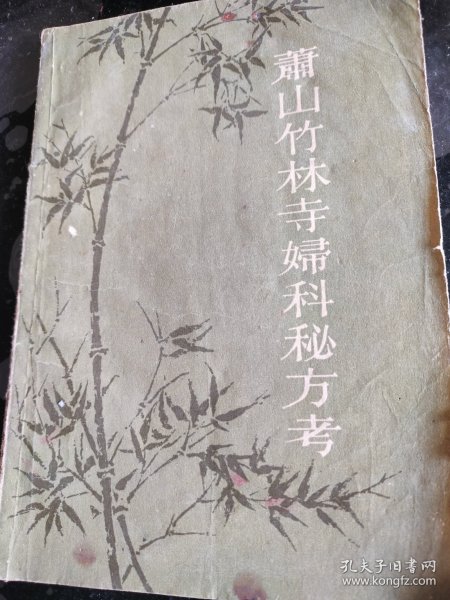 蕭山竹林寺婦科秘方考
孔夫子旧书网
www.kongfz.com